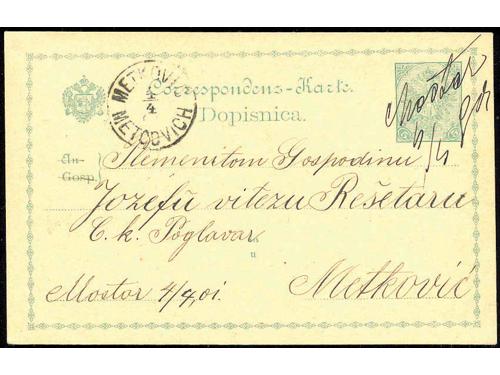 Correspondenz-Karte.
Dopisnica.
METKOVIĆ
4
4
METCOVICH
Mostar
An-
Gosp.
Plemenitom Gospodinu
Jozefu vitezu Rešetaru
C. k. Poglavar
u
Mostar 4/4,01.
Metković